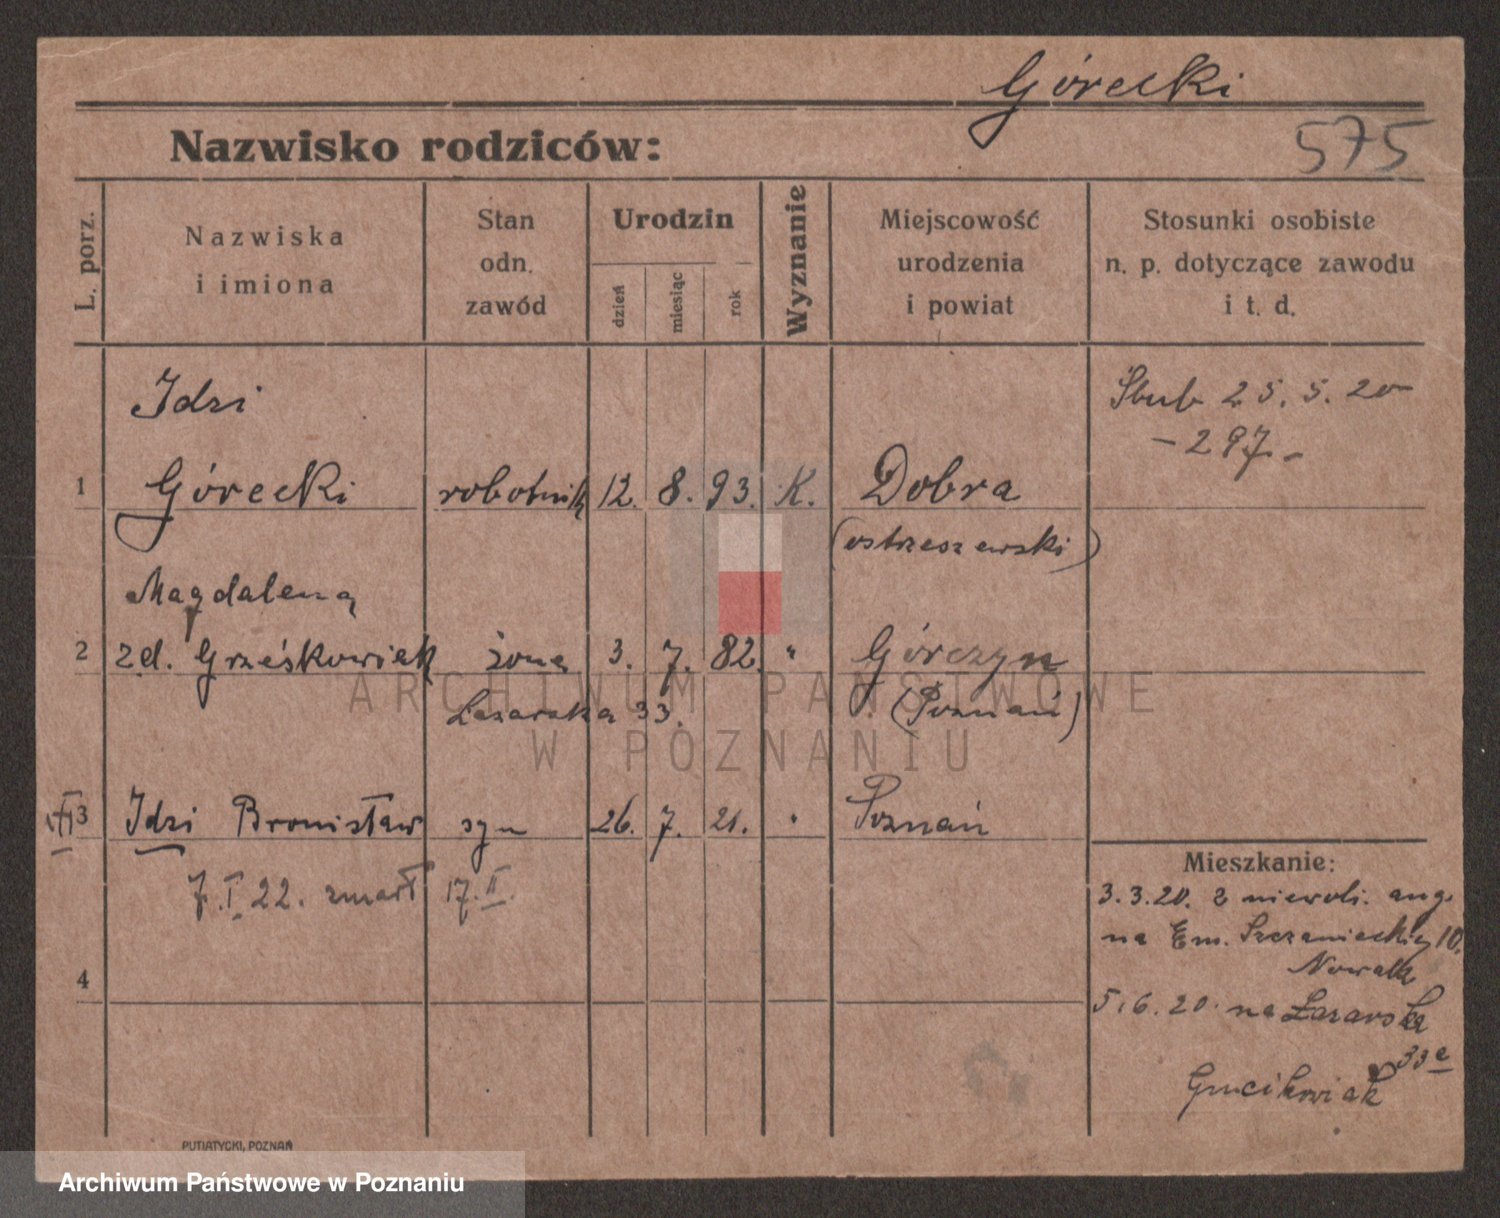 Górecki
Nazwisko rodziców:
575
L. porz.
Nazwiska
i imiona
Stan
odn.
zawód
Urodzin
dzień
miesiąc
rok
Wyznanie
Miejscowość
urodzenia
i powiat
Stosunki osobiste
n. p. dotyczące zawodu
i t. d.
Idzi
Ślub 25.5.20
- 297 -
1 Górecki robotnik 12. 8. 93. K. Dobra
(ostrzeszewski)
Magdalena
2 zd. Grześkowiak żona 3. 7. 82. " Górczyn
Łazarska 33. (Poznań)
3 Idzi Bronisław syn 26. 7. 21. " Poznań
Mieszkanie:
7.I.22. zmarł 17.II.
3.3.20. z niewoli. ang.
na Em. Szczanieckiej 10.
Nowak
4
5.6.20. na Łazarska
33a
PUTIATYCKI, POZNAŃ
ARCHIWUM PAŃSTWOWE
W POZNANIU
Archiwum Państwowe w Poznaniu